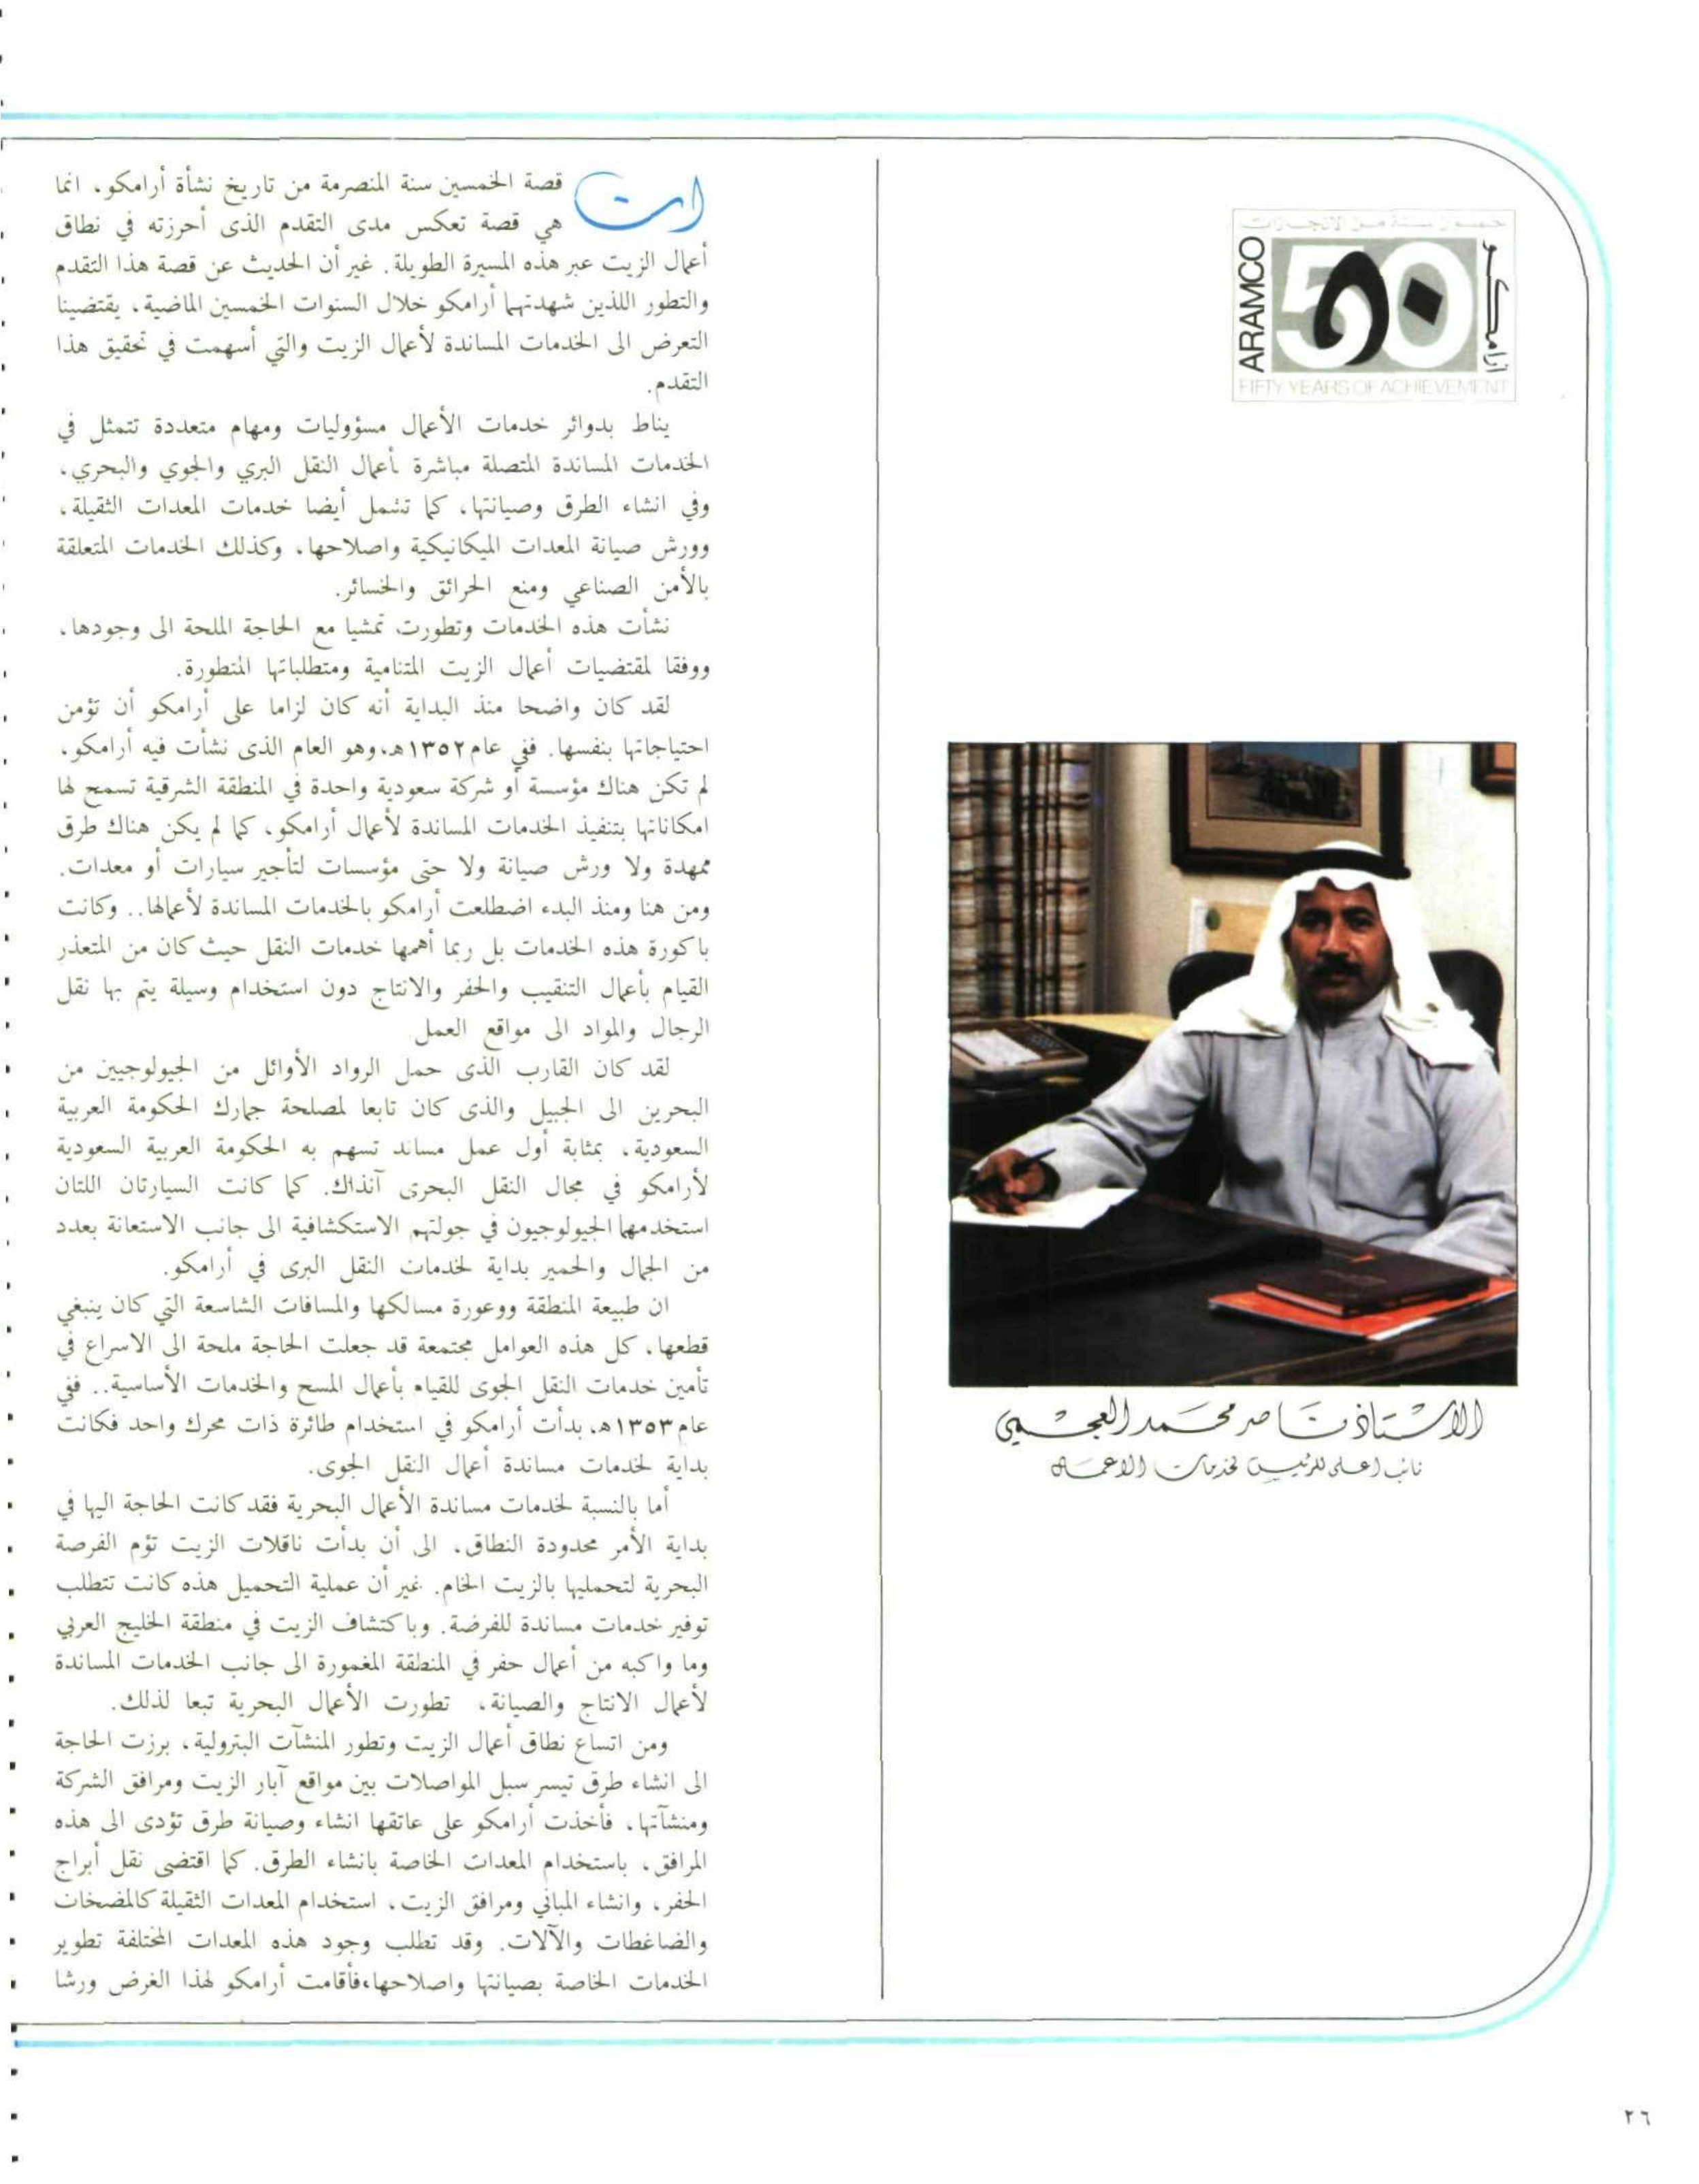 خمسون سنة من الانجازات
ARAMCO
50
٥٠
ارامكو
FIFTY YEARS OF ACHIEVEMENT
الاستاذ ناصر محمد العجمي
نائب اعلى للرئيس لخدمات الاعمال
ان قصة الخمسين سنة المنصرمة من تاريخ نشأة أرامكو، انما
هي قصة تعكس مدى التقدم الذى أحرزته في نطاق
أعمال الزيت عبر هذه المسيرة الطويلة. غير أن الحديث عن قصة هذا التقدم
والتطور اللذين شهدتهما أرامكو خلال السنوات الخمسين الماضية، يقتضينا
التعرض الى الخدمات المساندة لأعمال الزيت والتي أسهمت في تحقيق هذا
التقدم.
يناط بدوائر خدمات الأعمال مسؤوليات ومهام متعددة تتمثل في
الخدمات المساندة المتصلة مباشرة بأعمال النقل البري والجوي والبحري،
وفي انشاء الطرق وصيانتها، كما تشمل أيضا خدمات المعدات الثقيلة،
وورش صيانة المعدات الميكانيكية واصلاحها، وكذلك الخدمات المتعلقة
بالأمن الصناعي ومنع الحرائق والخسائر.
نشأت هذه الخدمات وتطورت تمشيا مع الحاجة الملحة الى وجودها،
ووفقا لمقتضيات أعمال الزيت المتنامية ومتطلباتها المتطورة.
لقد كان واضحا منذ البداية أنه كان لزاما على أرامكو أن تؤمن
احتياجاتها بنفسها. ففي عام ١٣٥٢هـ، وهو العام الذى نشأت فيه أرامكو،
لم تكن هناك مؤسسة أو شركة سعودية واحدة في المنطقة الشرقية تسمح لها
امكاناتها بتنفيذ الخدمات المساندة لأعمال أرامكو، كما لم يكن هناك طرق
ممهدة ولا ورش صيانة ولا حتى مؤسسات لتأجير سيارات أو معدات.
ومن هنا ومنذ البدء اضطلعت أرامكو بالخدمات المساندة لأعمالها.. وكانت
باكورة هذه الخدمات بل ربما أهمها خدمات النقل حيث كان من المتعذر
القيام بأعمال التنقيب والحفر والانتاج دون استخدام وسيلة يتم بها نقل
الرجال والمواد الى مواقع العمل
لقد كان القارب الذى حمل الرواد الأوائل من الجيولوجيين من
البحرين الى الجبيل والذى كان تابعا لمصلحة جمارك الحكومة العربية
السعودية، بمثابة أول عمل مساند تسهم به الحكومة العربية السعودية
لأرامكو في مجال النقل البحرى آنذاك. كما كانت السيارتان اللتان
استخدمهما الجيولوجيون في جولتهم الاستكشافية الى جانب الاستعانة بعدد
من الجمال والحمير بداية لخدمات النقل البرى في أرامكو.
ان طبيعة المنطقة ووعورة مسالكها والمسافات الشاسعة التي كان ينبغي
قطعها، كل هذه العوامل مجتمعة قد جعلت الحاجة ملحة الى الاسراع في
تأمين خدمات النقل الجوى للقيام بأعمال المسح والخدمات الأساسية.. ففي
عام ١٣٥٣هـ، بدأت أرامكو في استخدام طائرة ذات محرك واحد فكانت
بداية لخدمات مساندة أعمال النقل الجوى.
أما بالنسبة لخدمات مساندة الأعمال البحرية فقد كانت الحاجة اليها في
بداية الأمر محدودة النطاق، الى أن بدأت ناقلات الزيت تؤم الفرصة
البحرية لتحمليها بالزيت الخام. غير أن عملية التحميل هذه كانت تتطلب
توفير خدمات مساندة للفرضة. وباكتشاف الزيت في منطقة الخليج العربي
وما واكبه من أعمال حفر في المنطقة المغمورة الى جانب الخدمات المساندة
لأعمال الانتاج والصيانة، تطورت الأعمال البحرية تبعا لذلك.
ومن اتساع نطاق أعمال الزيت وتطور المنشآت البترولية، برزت الحاجة
الى انشاء طرق تيسر سبل المواصلات بين مواقع آبار الزيت ومرافق الشركة
ومنشآتها، فأخذت أرامكو على عاتقها انشاء وصيانة طرق تؤدى الى هذه
المرافق، باستخدام المعدات الخاصة بانشاء الطرق. كما اقتضى نقل أبراج
الحفر، وانشاء المباني ومرافق الزيت، استخدام المعدات الثقيلة كالمضخات
والضاغطات والآلات. وقد تطلب وجود هذه المعدات المختلفة تطوير
الخدمات الخاصة بصيانتها واصلاحها، فأقامت أرامكو لهذا الغرض ورشا
٢٦